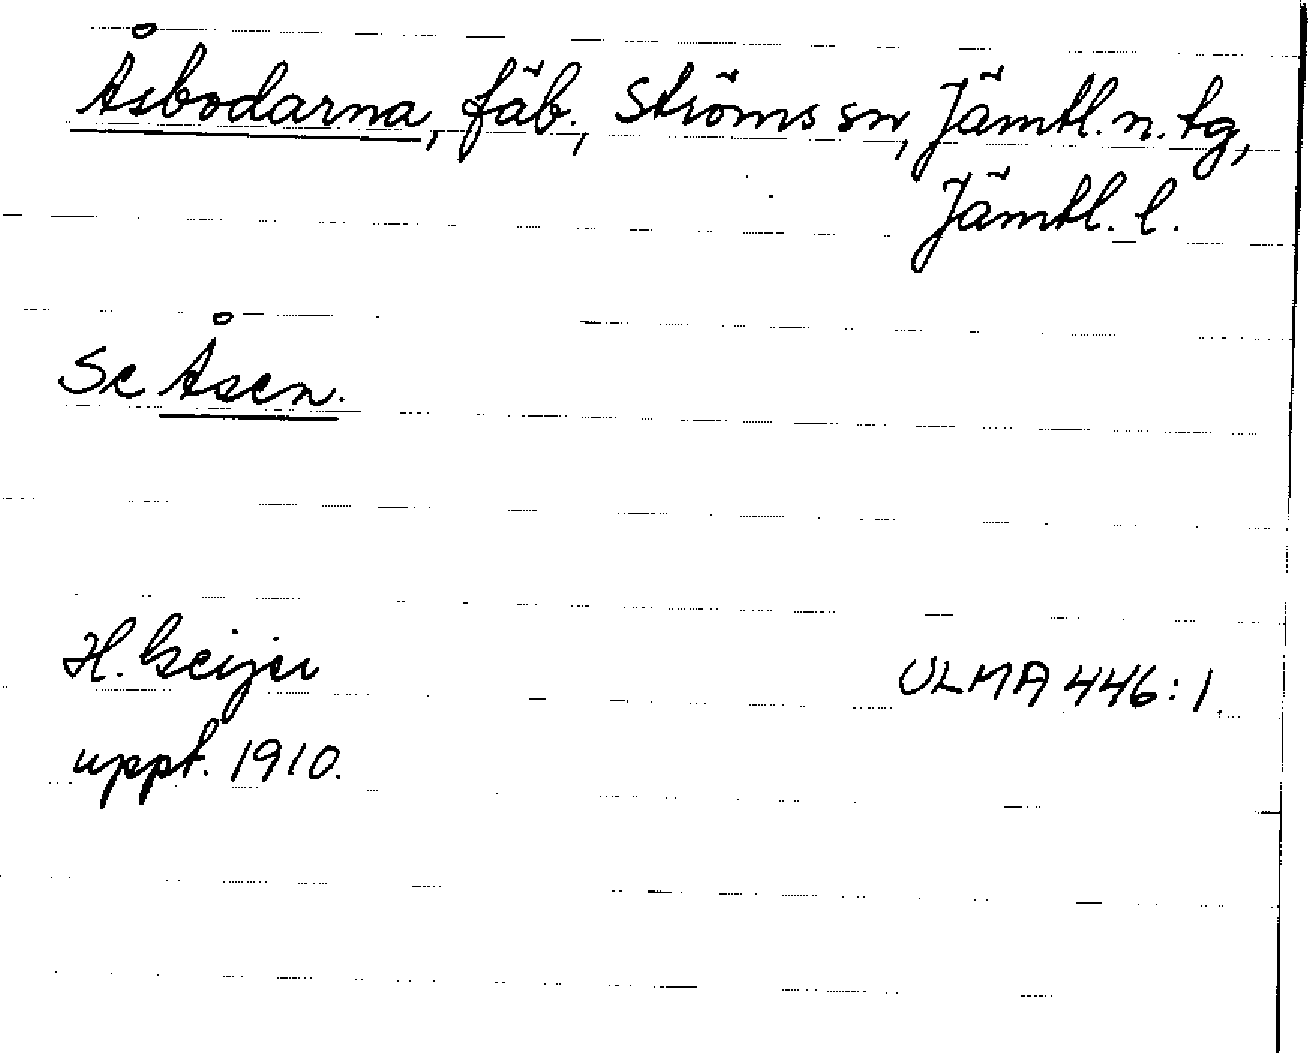 Åsbodarna, fäb., Ströms sn, Jämtl. n. tg,
Jämtl. l.
Se Åsen.
H. Geijer
ULMA 446:1.
uppt. 1910.